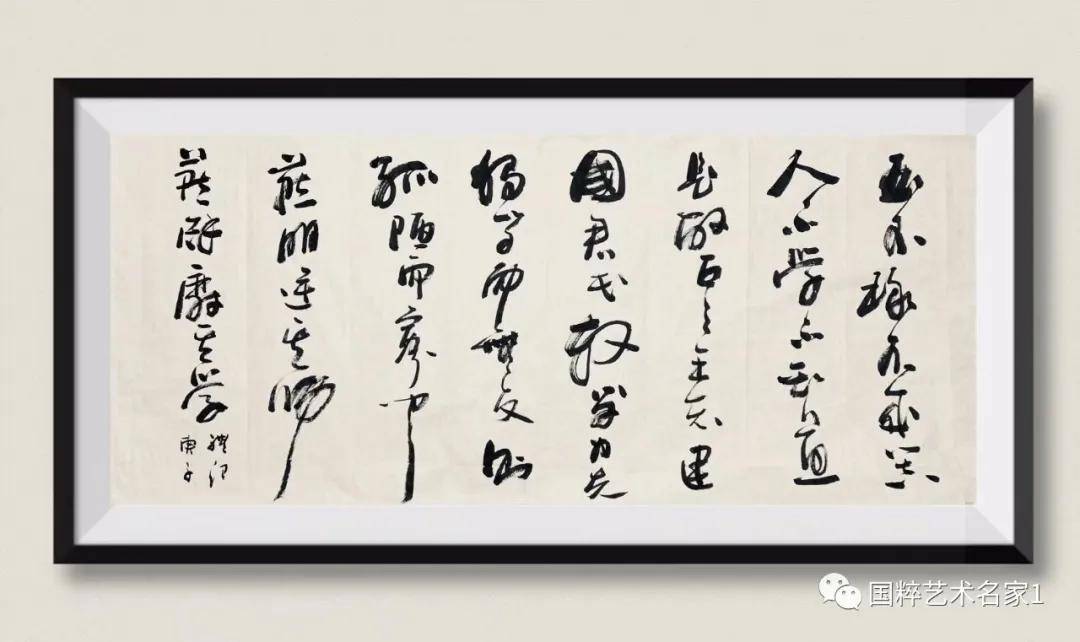 玉不琢不成器
人不学不知道
是故古之王者建
國君民教学为先
獨学而無友则
孤陋而寡闻
燕朋逆其师
燕辟廢其学
禮记
庚子
国粹艺术名家1